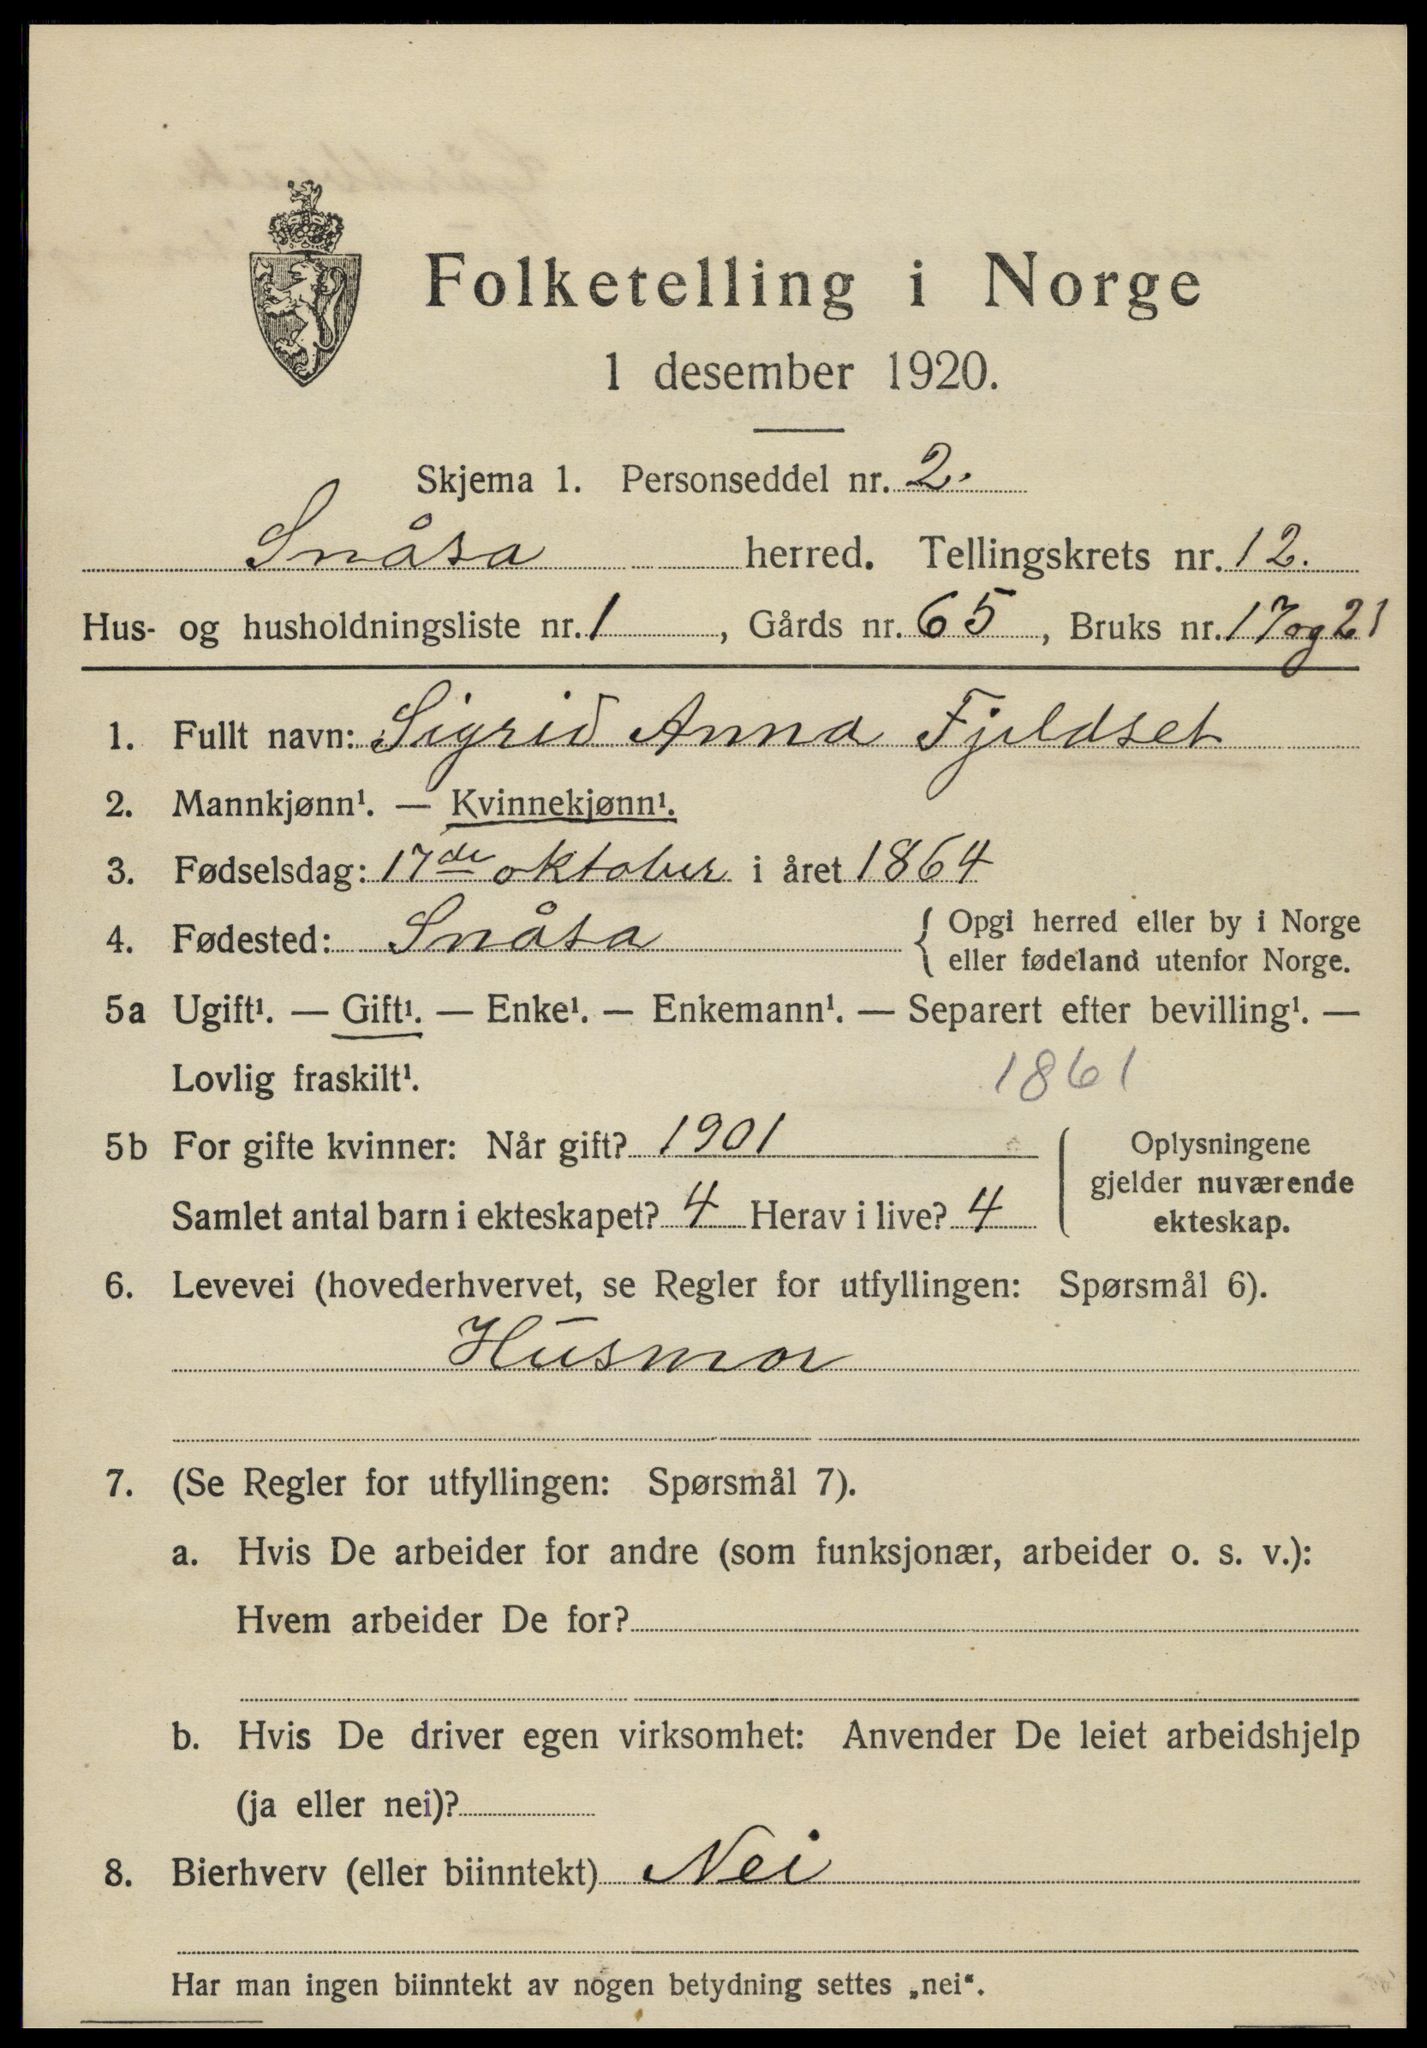 Folketelling i Norge
1 desember 1920.
Skjema 1. Personseddel nr. 2.
Snåsa herred. Tellingskrets nr. 12.
Hus- og husholdningsliste nr. 1, Gårds nr. 65, Bruks nr. 17 og 21
1. Fullt navn: Sigrid Anna Fjeldset
2. Mannkjønn¹. — Kvinnekjønn¹.
3. Fødselsdag: 17de oktober i året 1864
4. Fødested: Snåsa { Opgi herred eller by i Norge
eller fødeland utenfor Norge.
5a Ugift¹. — Gift¹. — Enke¹. — Enkemann¹. — Separert efter bevilling¹. —
Lovlig fraskilt¹. 1861
5b For gifte kvinner: Når gift? 1901
Samlet antal barn i ekteskapet? 4 Herav i live? 4
Oplysningene
gjelder nuværende
ekteskap.
6. Levevei (hovederhvervet, se Regler for utfyllingen: Spørsmål 6).
Husmor
7. (Se Regler for utfyllingen: Spørsmål 7).
a. Hvis De arbeider for andre (som funksjonær, arbeider o. s. v.):
Hvem arbeider De for?
b. Hvis De driver egen virksomhet: Anvender De leiet arbeidshjelp
(ja eller nei)?
8. Bierhverv (eller biinntekt) Nei
Har man ingen biinntekt av nogen betydning settes „nei".